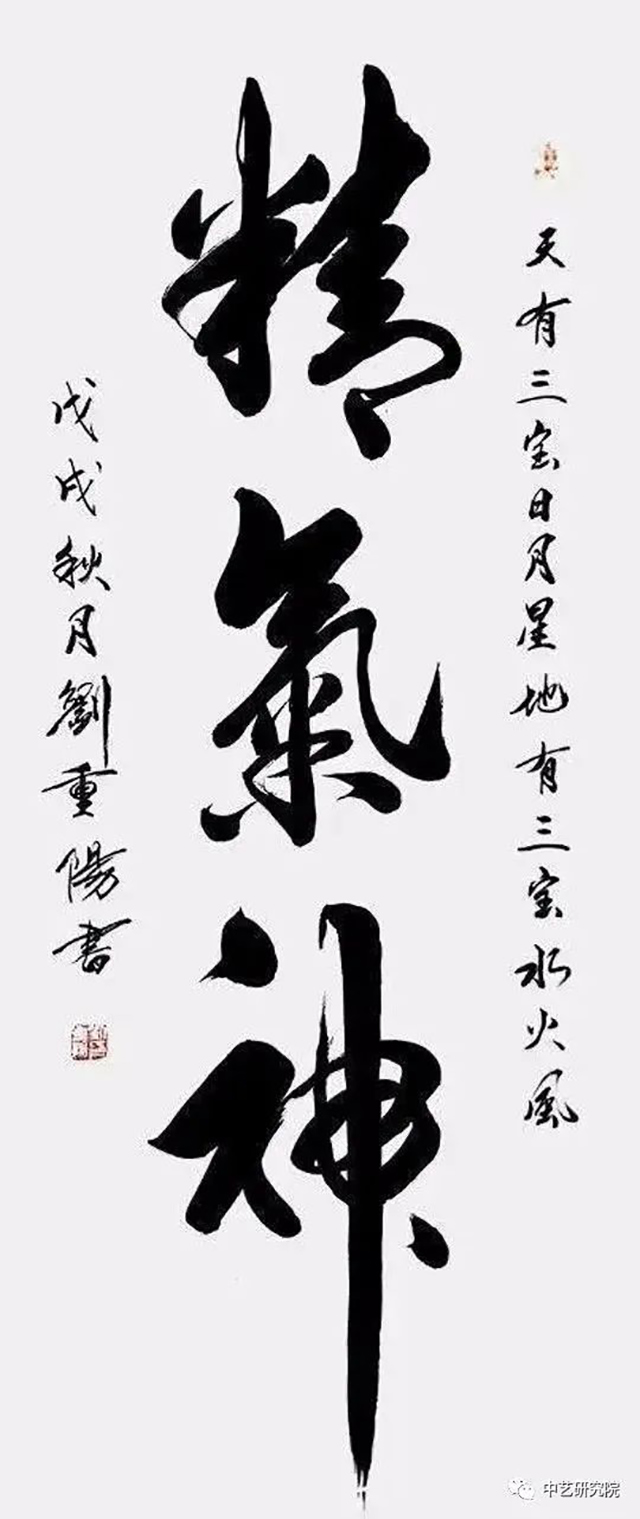 天有三宝日月星地有三宝水火风
精氣神
戊戌秋月劉重陽書
中艺研究院